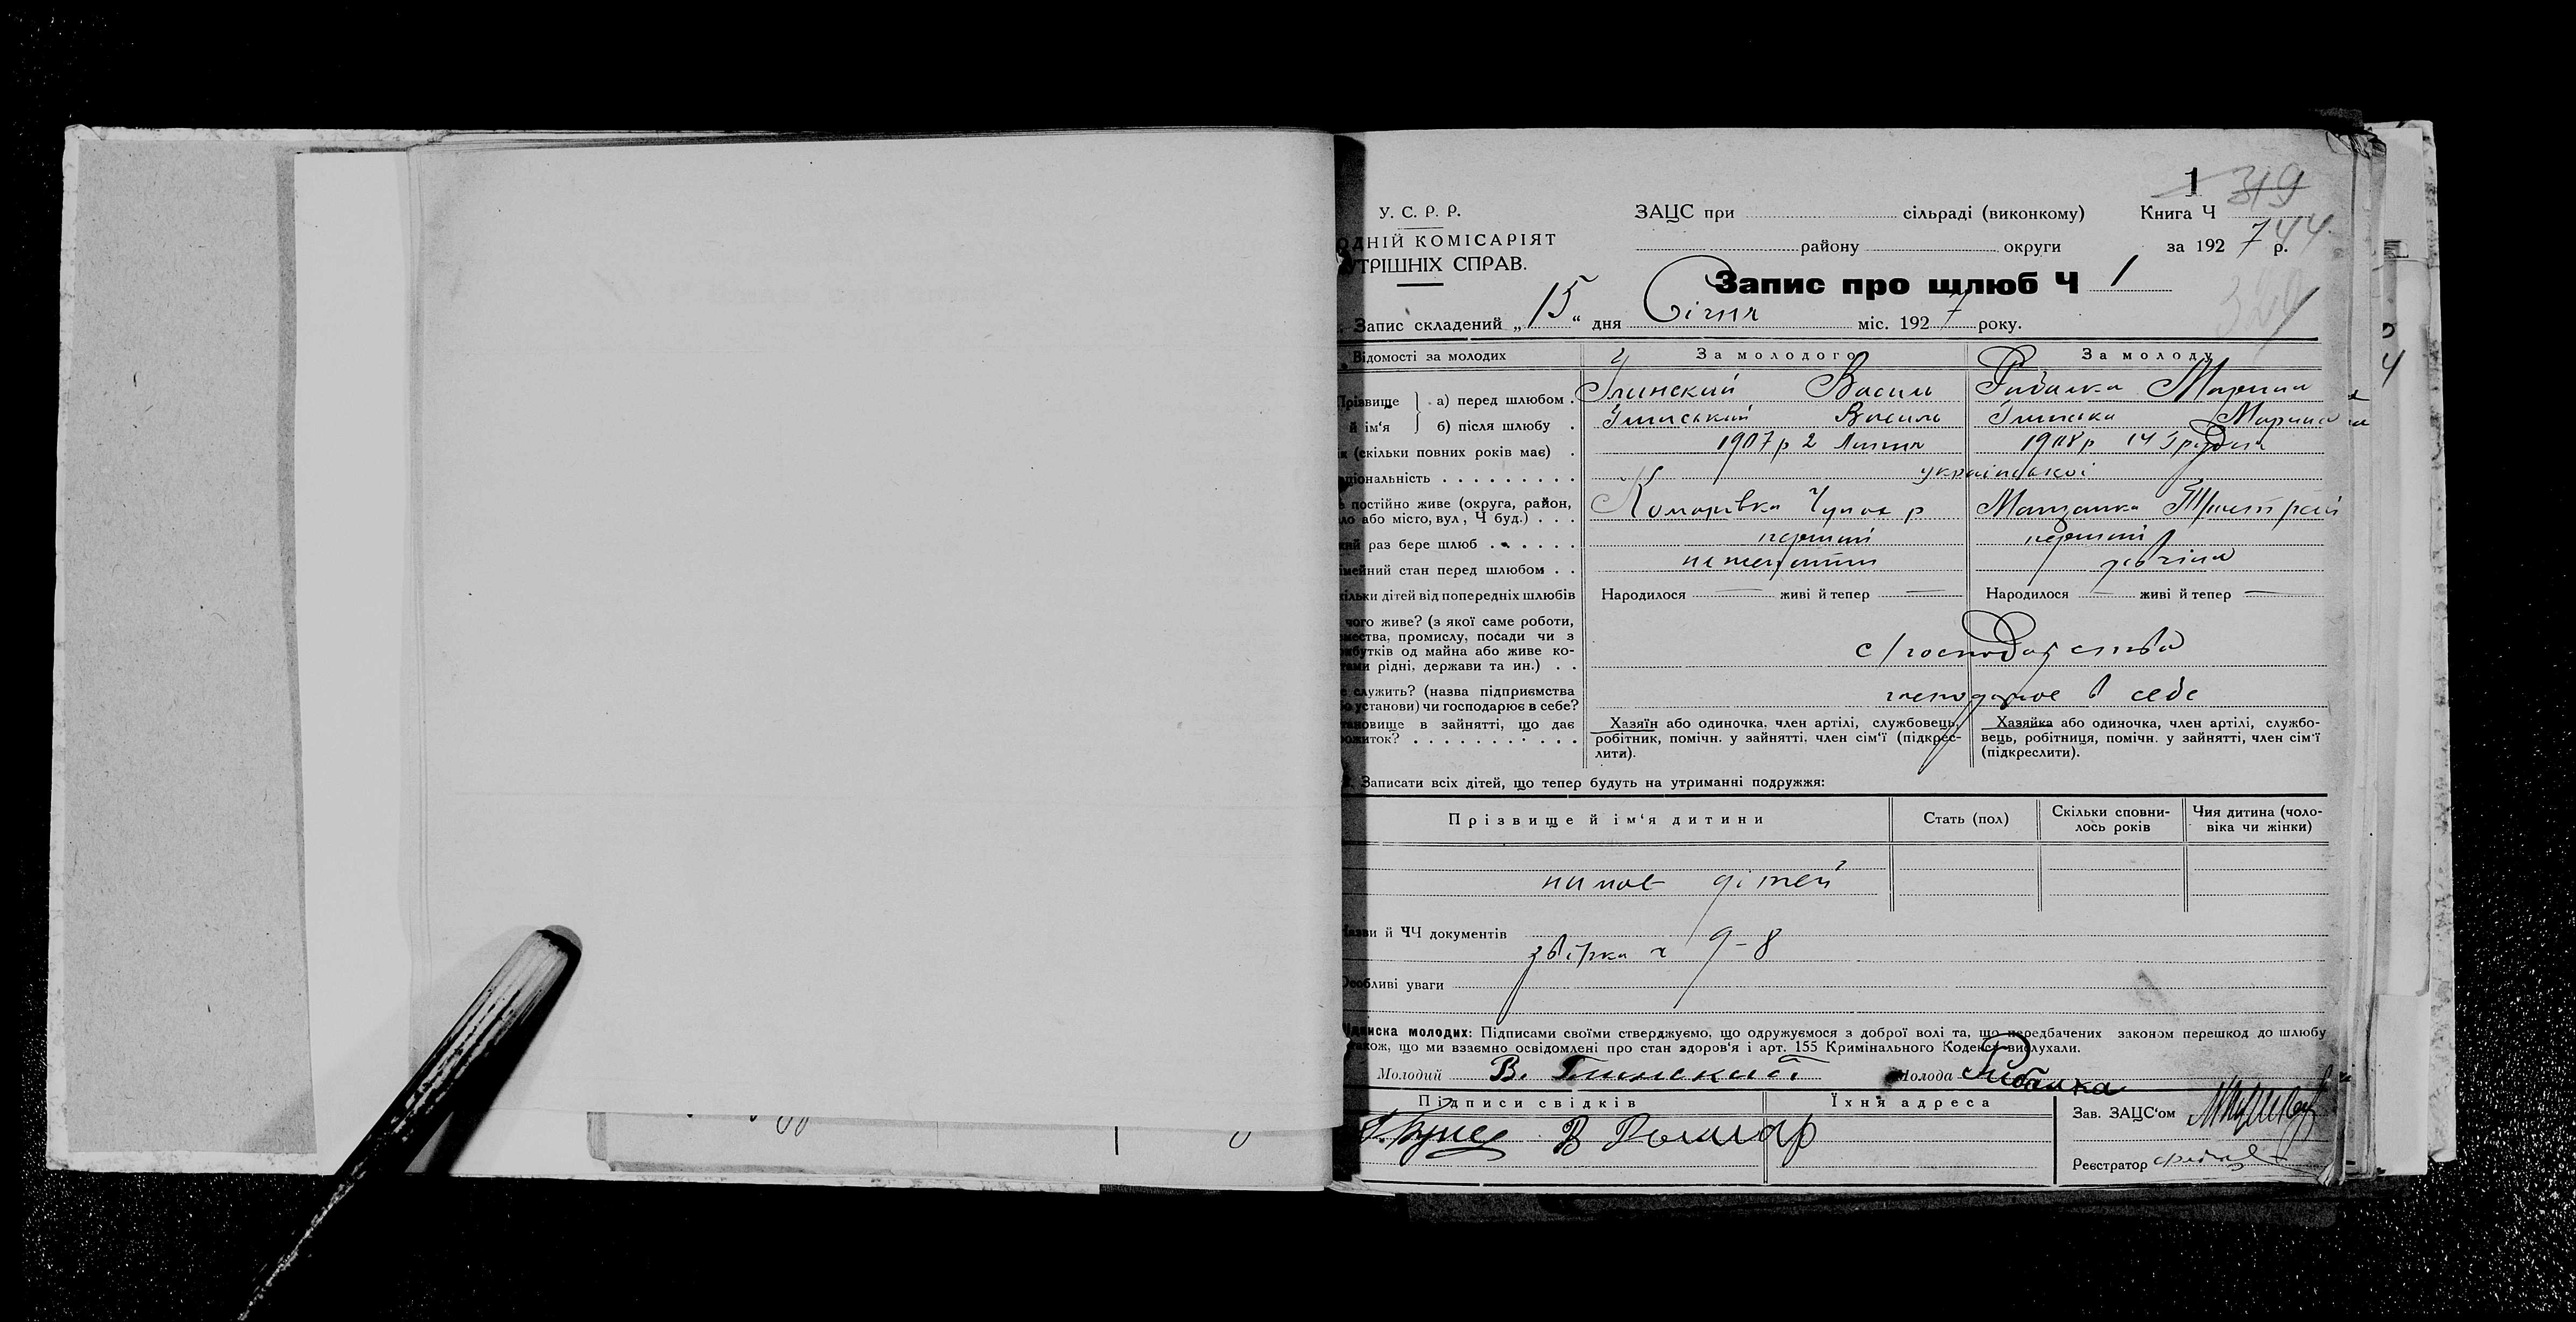 1 319
У. С. Р. Р.
ЗАЦС при сільраді (виконкому) Книга Ч 44
ОДНІЙ КОМІСАРІЯТ
району округи за 1927 р.
УТРІШНІХ СПРАВ.
Запис про шлюб Ч 1
320
Запис складений „15“ дня Січня міс. 1927 року.
Відомості за молодих За молодого За молоду
Прізвище й ім‘я
а) перед шлюбом Глинский Василь Рибалка Марина
б) після шлюбу Глинський Василь Глинська Марина
к (скільки повних років має) 1907 р 2 Липня 1908 р 14 Грудня
ціональність української
постійно живе (округа, район,
ло або місто, вул, Ч буд.) Комарівка
кий раз бере шлюб перший перший
імейний стан перед шлюбом нежонатий дівчина
кільки дітей від попередніх шлюбів Народилося — живі й тепер — Народилося — живі й тепер —
чого живе? (з якої саме роботи,
мества, промислу, посади чи з
ибутків од майна або живе ко-
тами рідні, держави та ин.) с/господарства
е служить? (назва підприємства
бо установи) чи господарює в себе? господарює в себе
тановище в зайнятті, що дає
рожиток?
Хазяїн або одиночка, член артілі, службовець,
робітник, помічн. у зайнятті, член сім‘ї (підкрес-
лити).
Хазяйка або одиночка, член артілі, службо-
вець, робітниця, помічн. у зайнятті, член сім‘ї
(підкреслити).
Записати всіх дітей, що тепер будуть на утриманні подружжя:
Прізвище й ім‘я дитини Стать (пол) Скільки сповни-
лось років Чия дитина (чоло-
віка чи жінки)
нимає дітей
Назви й ЧЧ документів
9-8
Особливі уваги
ідписка молодих: Підписами своїми стверджуємо, що одружуємося з доброї волі та, що передбачених законом перешкод до шлюбу
також, що ми взаємно освідомлені про стан здоров‘я і арт. 155 Кримінального Кодексу вислухали.
Молодий В. Глинский Молода Рибалка
Підписи свідків Їхня адреса
Зав. ЗАЦС‘ом
Реєстратор